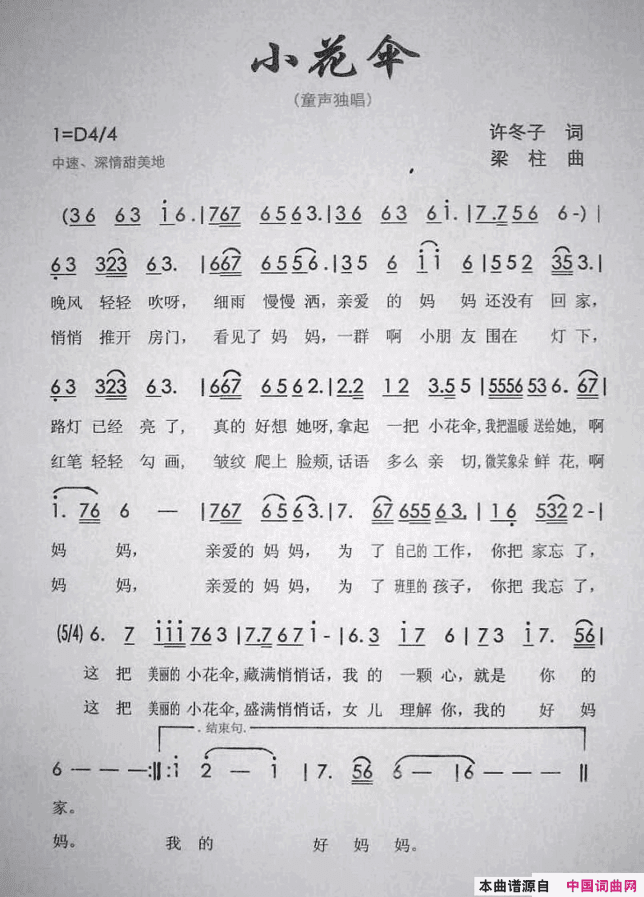 小花伞
（童声独唱）
1=D4/4
许冬子 词
中速、深情甜美地
梁柱 曲
(36 63 i6.|767 6563.|36 63 6i.|7.756 6-)|
63 323 63.|667 6556.|35 6 ii 6|552 353.|
晚风 轻轻 吹呀， 细雨 慢慢 洒，亲爱 的 妈 妈 还没有 回 家，
悄悄 推开 房门， 看见了 妈 妈，一群 啊 小朋 友 围在 灯 下，
63 323 63.|667 6562.|2.2 12 3.55|5556536. 67|
路灯 已经 亮 了， 真的 好想 她呀，拿起 一把 小花伞，我把温暖 送给她，啊
红笔 轻轻 勾 画， 皱纹 爬上 脸颊，话语 多么 亲 切，微笑象朵 鲜 花，啊
i. 76 6 —|767 6563.|7. 6765563.|16 5322-|
妈 妈， 亲爱的 妈 妈， 为 了 自己的 工作， 你把 家忘 了，
妈 妈， 亲爱的 妈 妈， 为 了 班里的 孩子， 你把 我忘 了，
(5/4) 6. 7 iii763|7.767i-|6.3 i7 6|73 i7. 56|
这 把 美丽的 小花伞，藏满悄悄话，我 的 一颗 心，就是 你 的
这 把 美丽的 小花伞，盛满悄悄话，女 儿 理解 你，我的 好 妈
.结束句.
6 — — —:||:i 2 — i|7. 56 6 —|6 — — — ||
家。
妈。 我 的 好 妈 妈。
本曲谱源自 中国词曲网